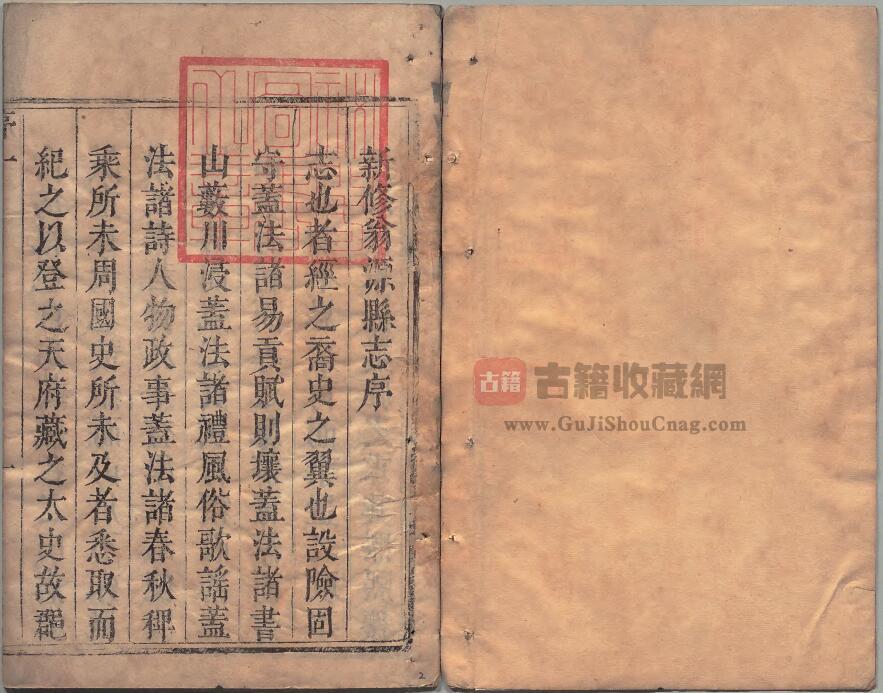 新修翁源縣志序
志也者經之裔史之翼也設險固
守蓋法諸易貢賦則壤蓋法諸書
山藪川浸蓋法諸禮風俗歌謠蓋
法諸詩人物政事蓋法諸春秋稗
乘所未周國史所未及者悉取而
紀之以登之天府藏之太史故
序一
古籍
古籍收藏網
www.GuJiShouCnag.com
2